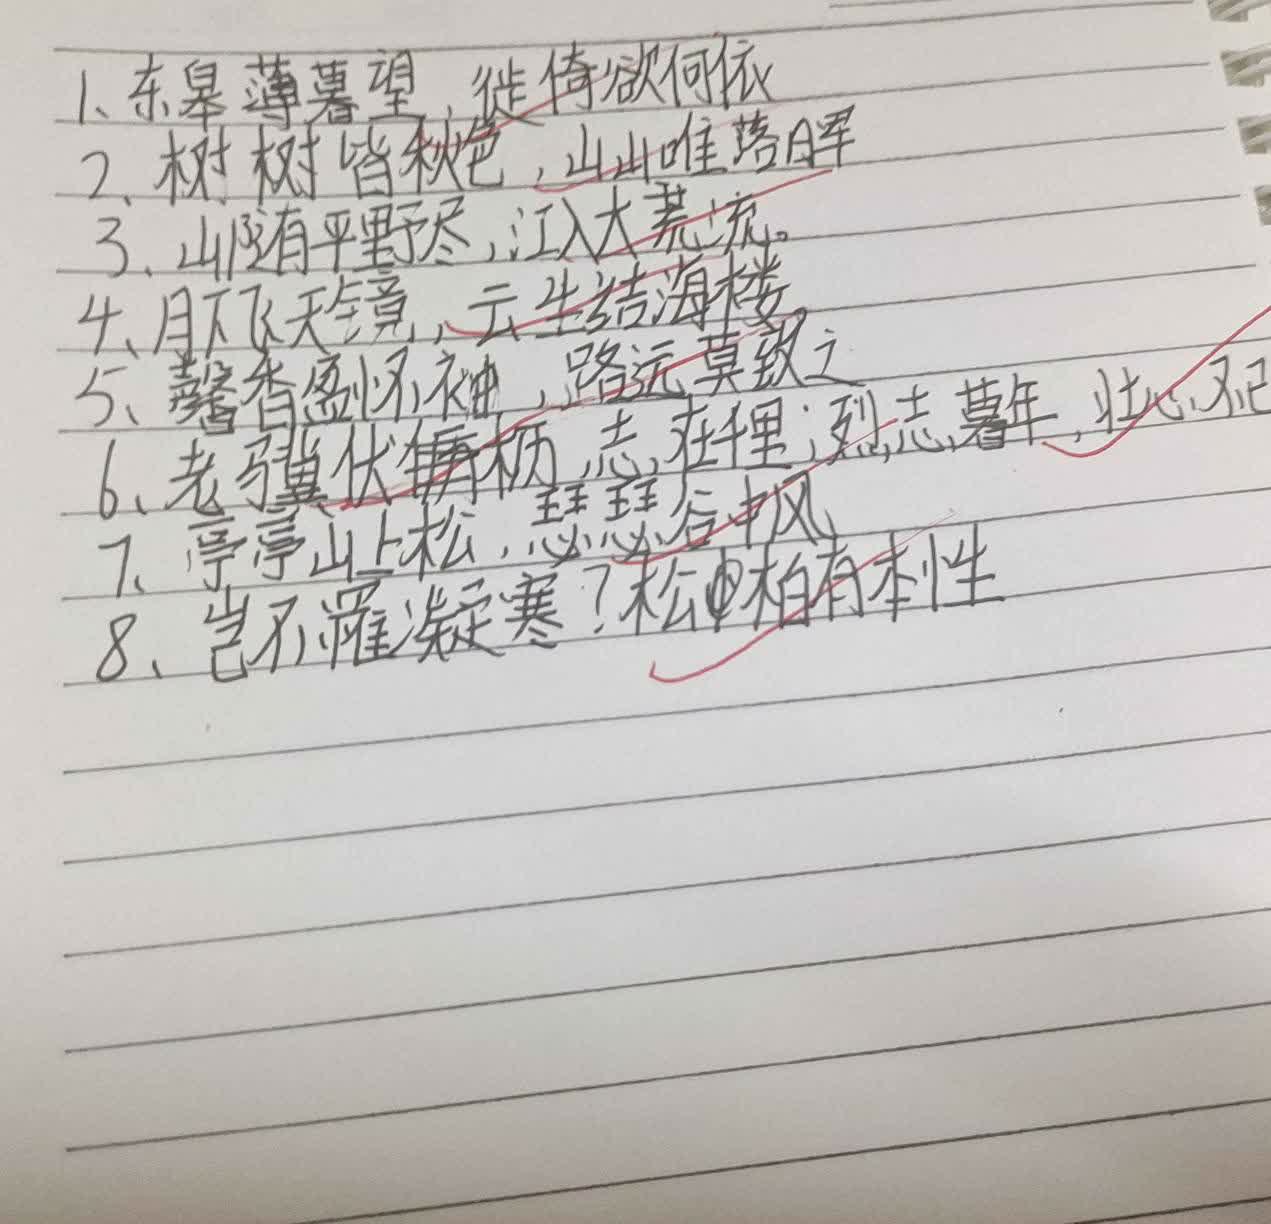 1、东皋薄暮望,徙倚欲何依
2、树树皆秋色,山山唯落晖
3、山随平野尽,江入大荒流。
4、月下飞天镜,云生结海楼。
5、馨香盈怀袖,路远莫致之
6、老骥伏枥,志在千里;烈志暮年,壮心不已
7、亭亭山上松,瑟瑟谷中风
8、岂不罹凝寒?松柏有本性